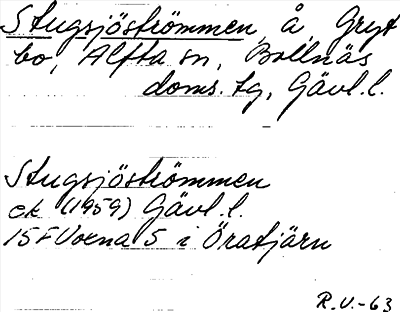 Stugsjöströmmen, å, Gryt
bo, Alfta sn, Bollnäs
doms. tg, Gävl. l.
Stugsjöströmmen
ek (1959) Gävl. l.
15F Voxna 5 i Öratjärn
R.V.-63